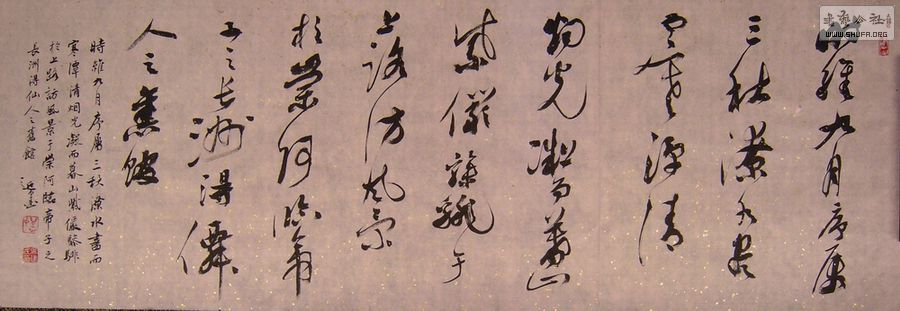 時維九月序属
三秋潦水尽
而寒潭清
烟光凝而暮山
紫儼骖騑于
上路访风景
於崇阿临帝
子之長洲得僊
人之舊館
時維九月序屬三秋潦水盡而
寒潭清烟光凝而暮山紫儼骖騑
於上路訪風景于崇阿臨帝子之
長洲得仙人之舊館
WWW.SHUFA.ORG